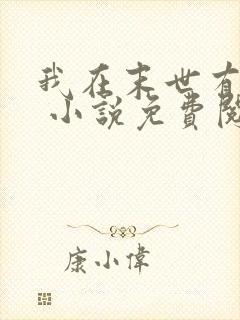 我在末世有
小說免費閱
康小偉